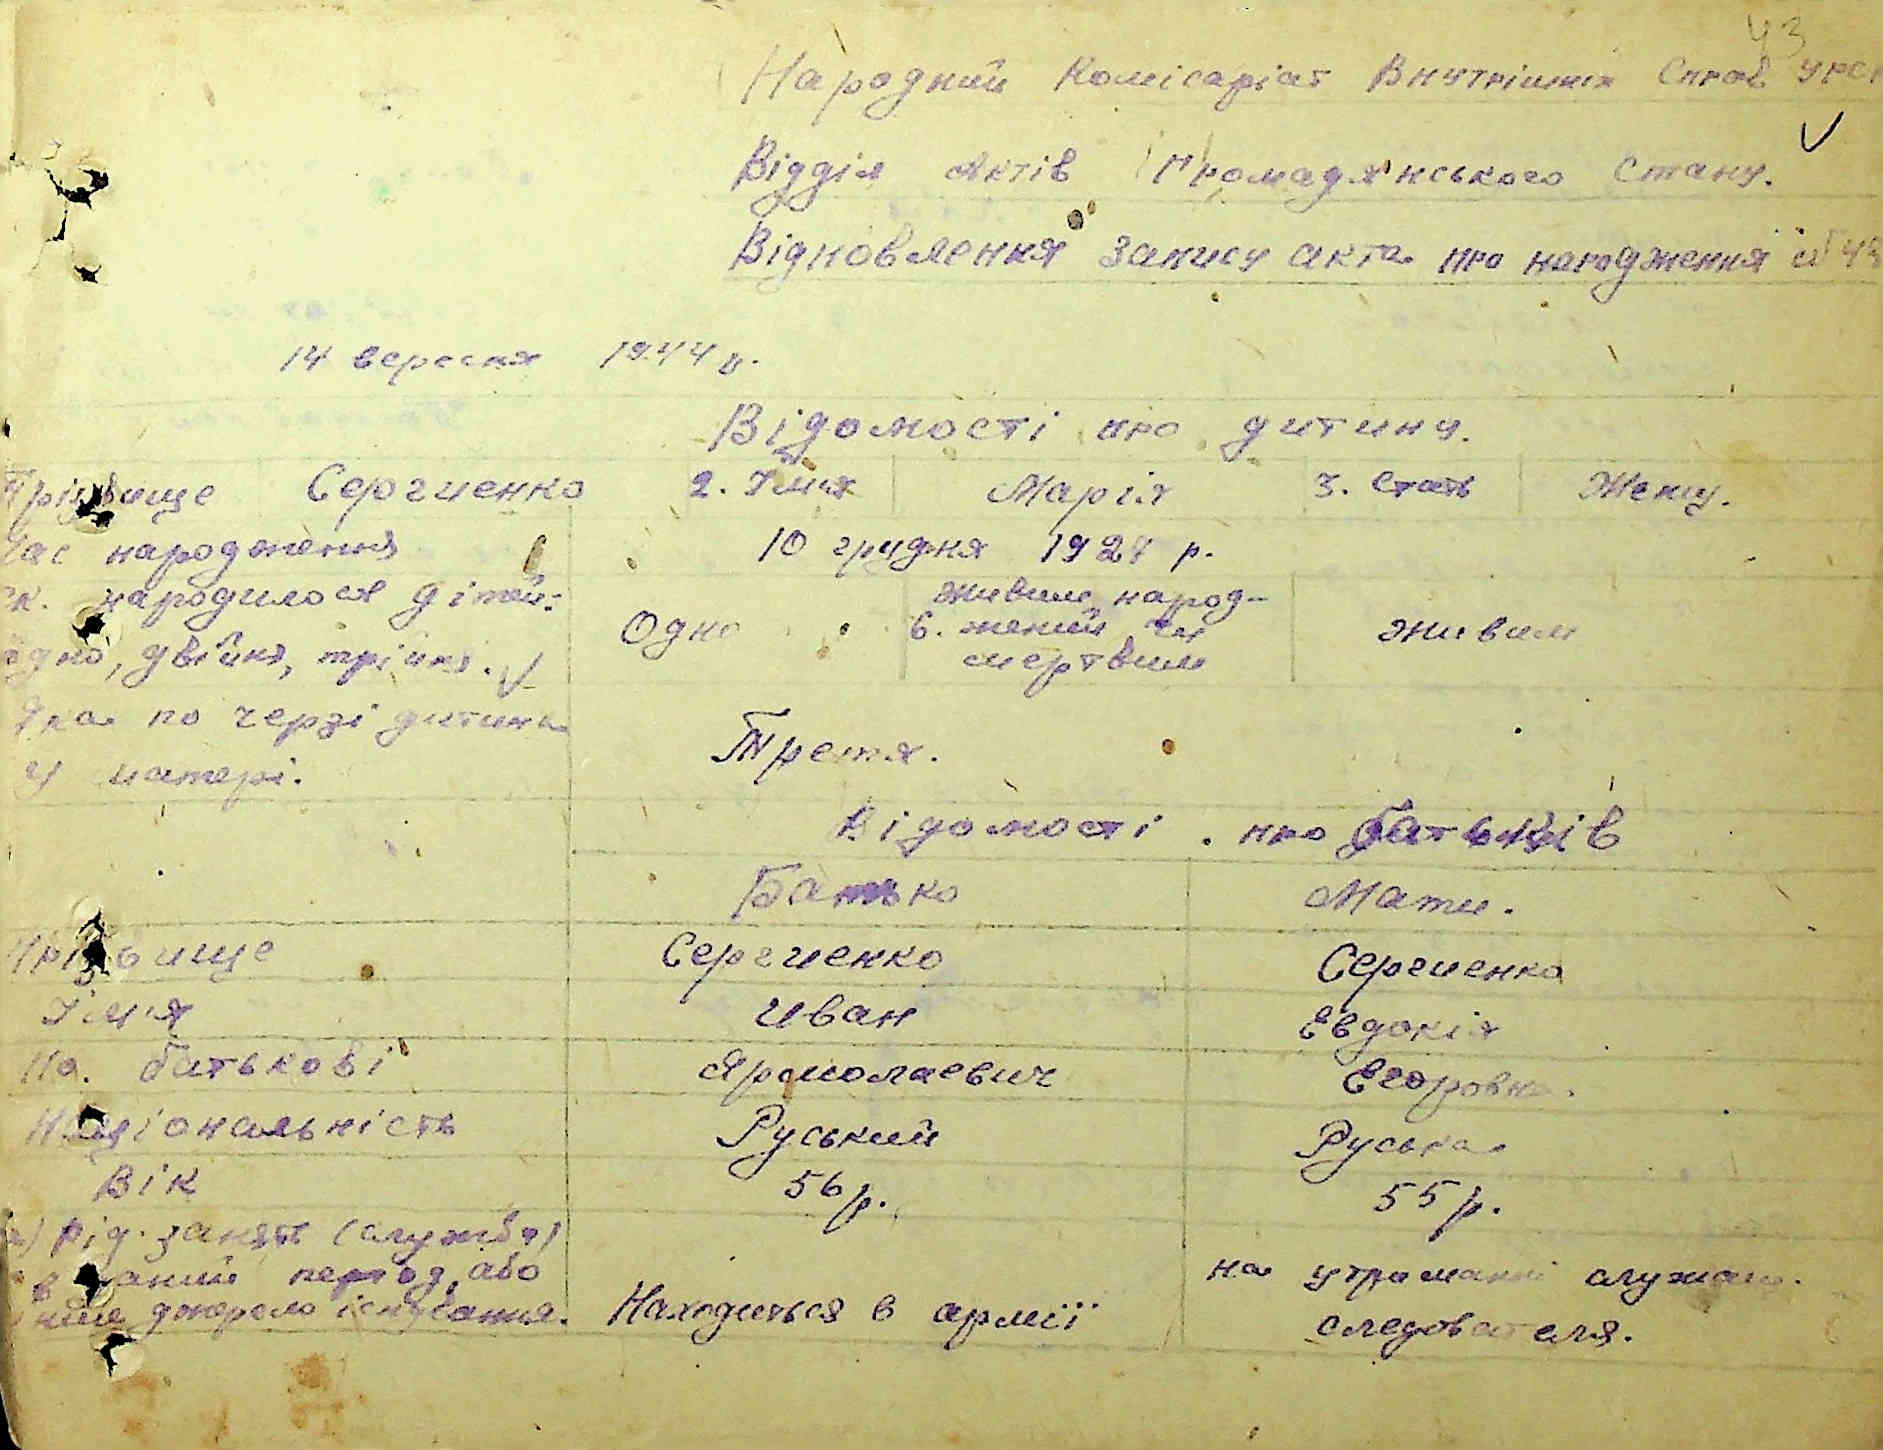 43
Народний Комісаріат Внутрішніх Справ УРСР
Відділ Актів Громадянського Стану.
Відновлення запису акта про народження № 43
14 вересня 1944 р.
Відомості про дитину.
Прізвище Сергиенко 2. Ім'я Марія 3. Стать Жењ.
Час народження 10 грудня 1927 р.
ск. народилося дітей:
одно, двійня, трійня. Одно 6. живим народжений чи мертвим живим
Яка по черзі дитина
у матері. Третя.
Відомості про батьків
Батько Мати.
Прізвище Сергиенко Сергиенко
Ім'я Иван Евдокія
По батькові Ярмолаевич Егоровна.
Національність Руський Руська
Вік 56 р. 55 р.
а) Рід занять (служба)
в даний період, або
інше джерело існування. Находиться в армії на утриманні служащ.
следователя.